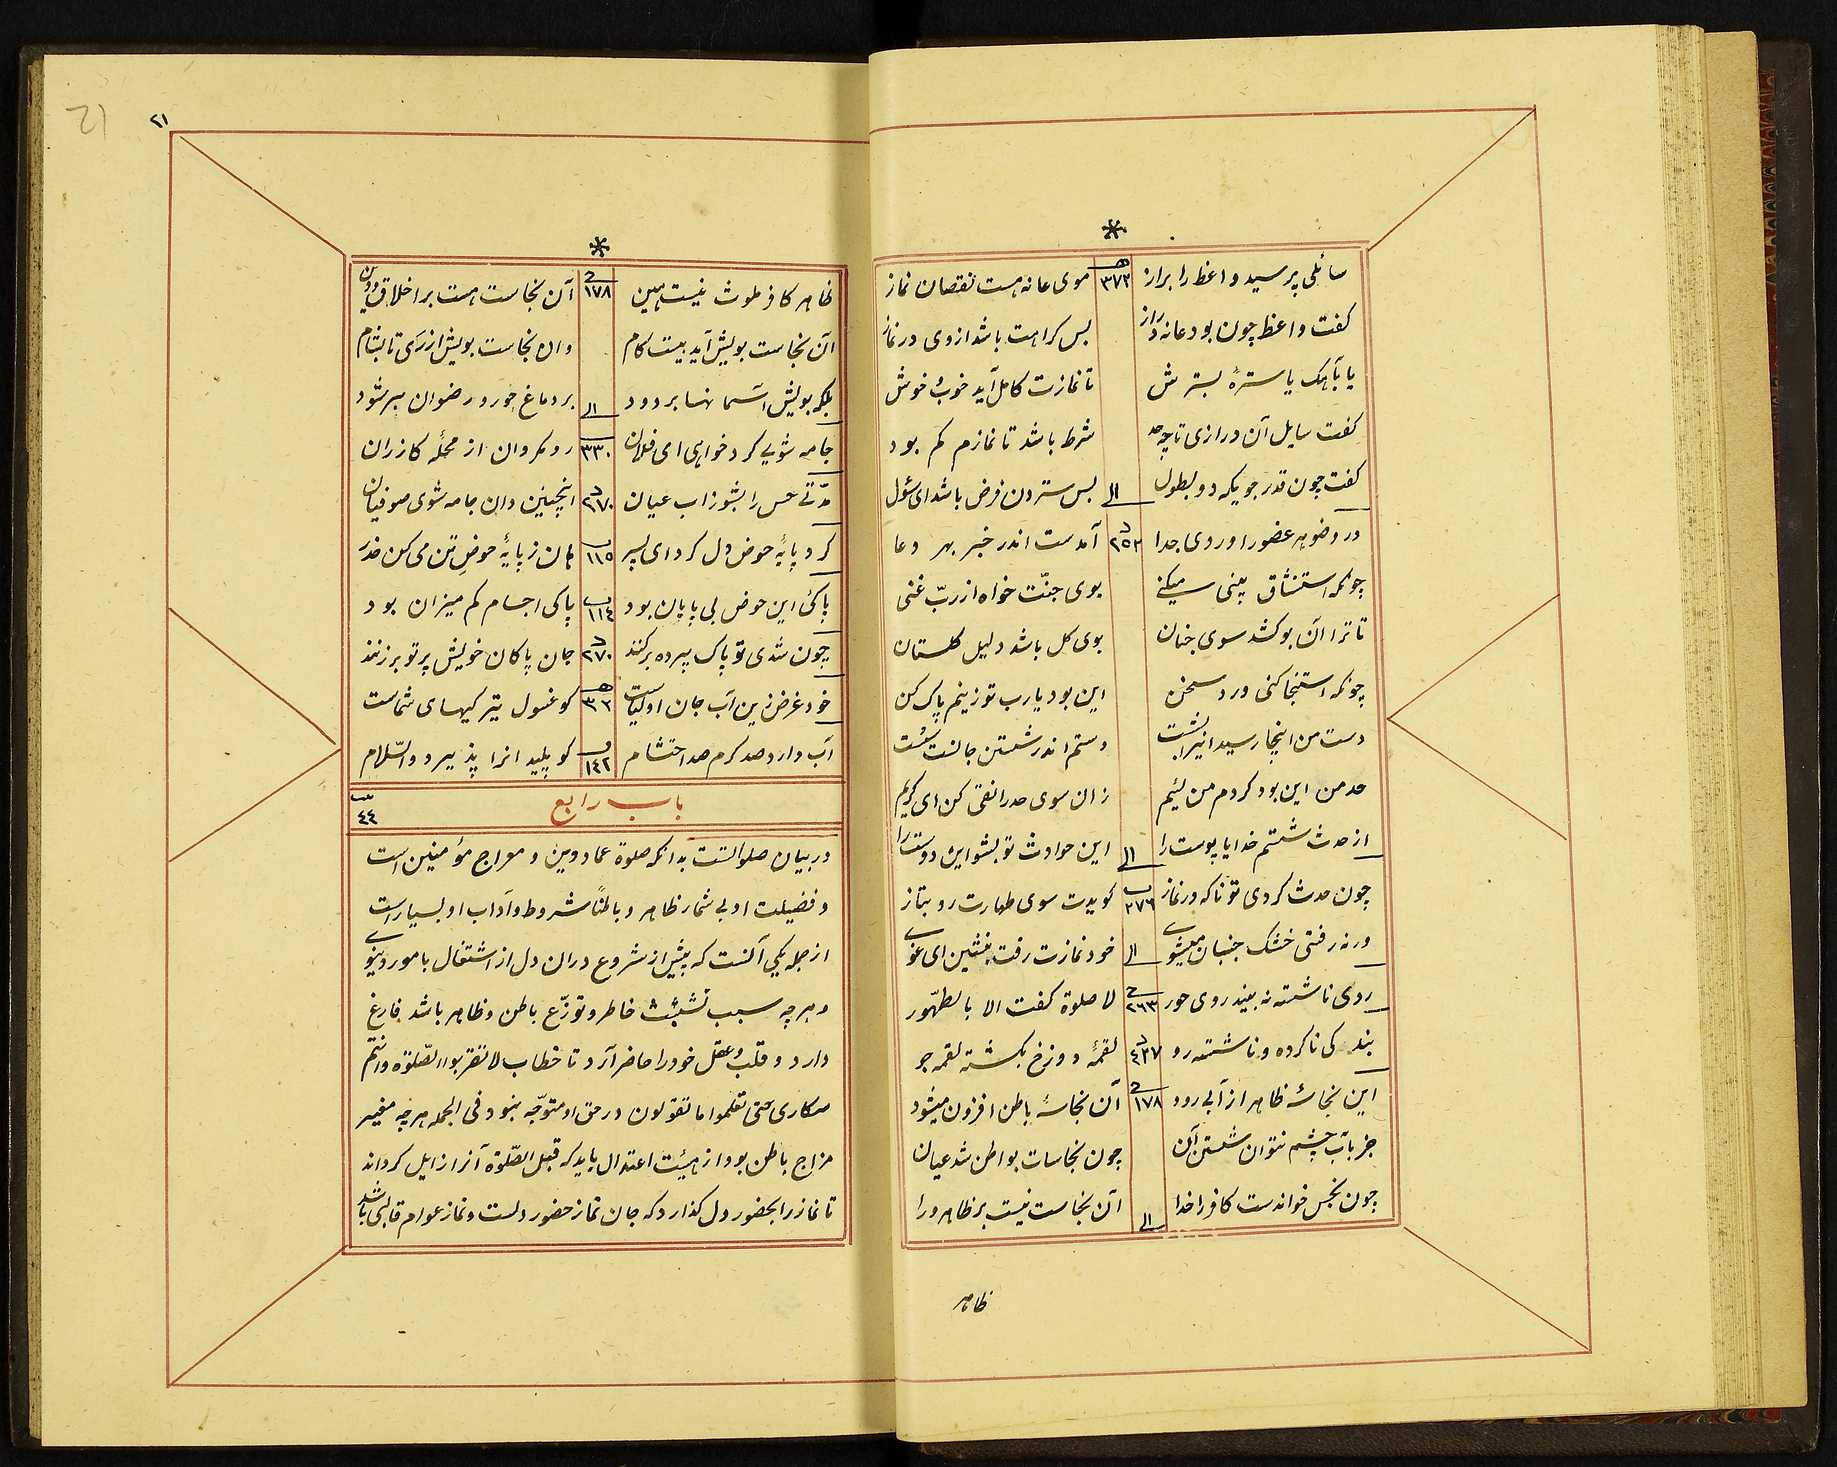 سائلی پرسید واعظ را براز ۳۷۳ موی عانه هست نقصان نماز
کفت واعظ چون بود عانه دراز بس کراهت باشد از وی در نماز
یا بآهک یا سترهٔ بسترش تا نمازت کامل آید خوب خوش
کفت سایل آن درازی تا چه حد شرط باشد تا نمازم کم بود
کفت چون قدر جویکه دو بطول الی بس ستردن فرض باشد ای سؤل
در وضو هر عضو را وردی جدا ۲۵۲ آمدست اندر خبر بهر دعا
چونکه استنشاق بینی میکنی بوی جنّت خواه از ربّ غنی
تا ترا آن بو کشد سوی جنان بوی کل باشد دلیل کلستان
چونکه استنجا کنی ورد سخن این بود یارب تو زینم پاک کن
دست من اینجا رسید اینرا بشست دستم اندر شستن جانست سست
حد من این بود کردم من لئیم زان سوی حد را نقی کن ای کریم
از حدث شستم خدایا پوست را الی این حوادث تو بشو این دوست را
چون حدث کردی تو ناکه در نماز ۲۷۶ کویدت سوی طهارت رو بتاز
ور نه رفتی خشک جنبان میشوی الی خود نمازت رفت بنشین ای غوی
روی ناشسته نه بیند روی حور ۲۶۳ لا صلوة کفت الا بالطّهور
بندکی ناکرده و ناشسته رو ۴۳۷ لقمهٔ دوزخ بکشته لقمه جو
این نجاسهٔ ظاهر از آبی رود ۱۷۸ آن نجاسهٔ باطن افزون میشود
جز بآب چشم نتوان شستن آن چون نجاسات بواطن شد عیان
چون نجس خواندست کافر را خدا الی آن نجاست نیست بر ظاهر ورا
ظاهر
۲۱
21
ظاهر کافر ملوث نیست هین ۱۷۸ آن نجاست هست بر اخلاق و دین
آن نجاست بویش آید بیست کام وان نجاست بویش از ری تا بشام
بلکه بویش آسمانها بر دود الی بر دماغ حور و رضوان بر شود
جامه شویی کرد خواهی ای فلان ۳۳۰ رو مکردان از محلّه کازران
مدّتی حس را بشو ز آب عیان ۲۷۰ اینچنین دان جامه شوی صوفیان
کرد پایهٔ حوض دل کرد ای پسر ۱۱۵ هان ز پایهٔ حوض تن می کن حذر
پاکئ این حوض بی پایان بود ۱۱۴ پاکی اجسام کم میزان بود
چون شدی تو پاک پرده برکند ۲۷۰ جان پاکان خویش بر تو برزند
خود غرض زین آب جان اولیاست ۳۲ کو غسول تیرکیهای شماست
آب دارد صد کرم صد احتشام ۱۴۲ کو پلیدانرا پذیرد والسّلام
باب رابع ۴۴
در بیان صلواتست بدانکه صلوة عماد دین و معراج مؤمنین است
و فضیلت او بی شمار ظاهر و باطناً شروط و آداب او بسیار است
از جمله یکی آنست که پیش از شروع دران دل از اشتغال بامور دنیوی
و هر چه سبب تشبّث خاطر و توزّع باطن و ظاهر باشد فارغ
دارد و قلب و عقل خود را حاضر آرد تا خطاب لا تقربوا الصّلوة وانتم
سکاری حتی تعلموا ما تقولون در حق او متوجّه نبود فی الجمله هر چه مغیر
مزاج باطن بود از هیئت اعتدال باید که قبل الصّلوة آنرا زایل کرداند
تا نماز را بحضور دل کذارد که جان نماز حضور دلست و نماز عوام قالبی باشد